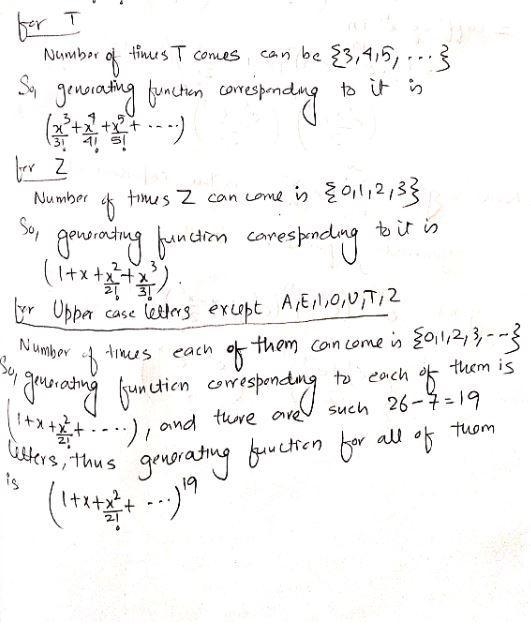 for T
Number of times T comes can be {3,4,5, ...}
So, generating function corresponding to it is
(x³/3! + x⁴/4! + x⁵/5! + ....)
for Z
Number of times Z can come is {0,1,2,3}
So, generating function corresponding to it is
(1+x+x²/2!+x³/3!).
for Upper case letters except A,E,I,O,U,T,Z
Number of times each of them can come is {0,1,2,3,--}
So, generating function corresponding to each of them is
(1+x+x²/2!+....), and there are such 26-7=19
letters, thus generating function for all of them
is (1+x+x²/2!+ ...)¹⁹